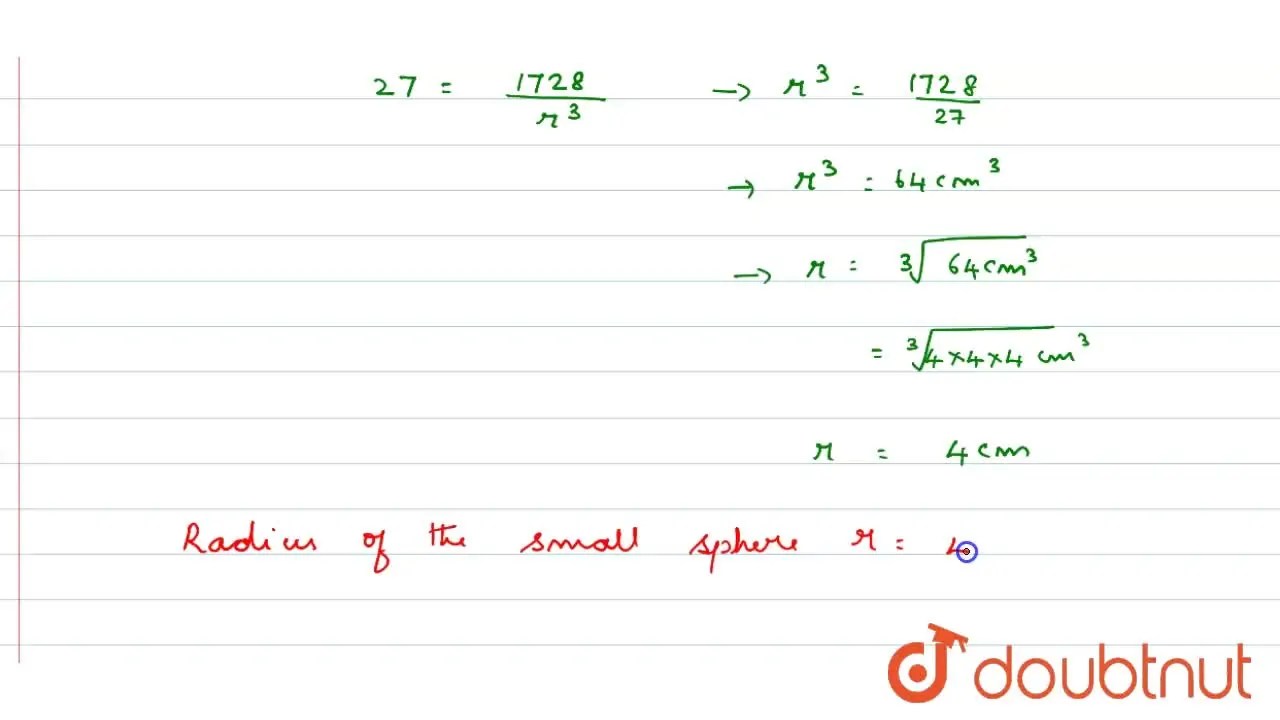 27 = 1728/r³ → r³ = 1728/27
→ r³ = 64 cm³
→ r = ∛64 cm³
= ∛4×4×4 cm³
r = 4 cm
Radius of the small sphere r = 4
doubtnut